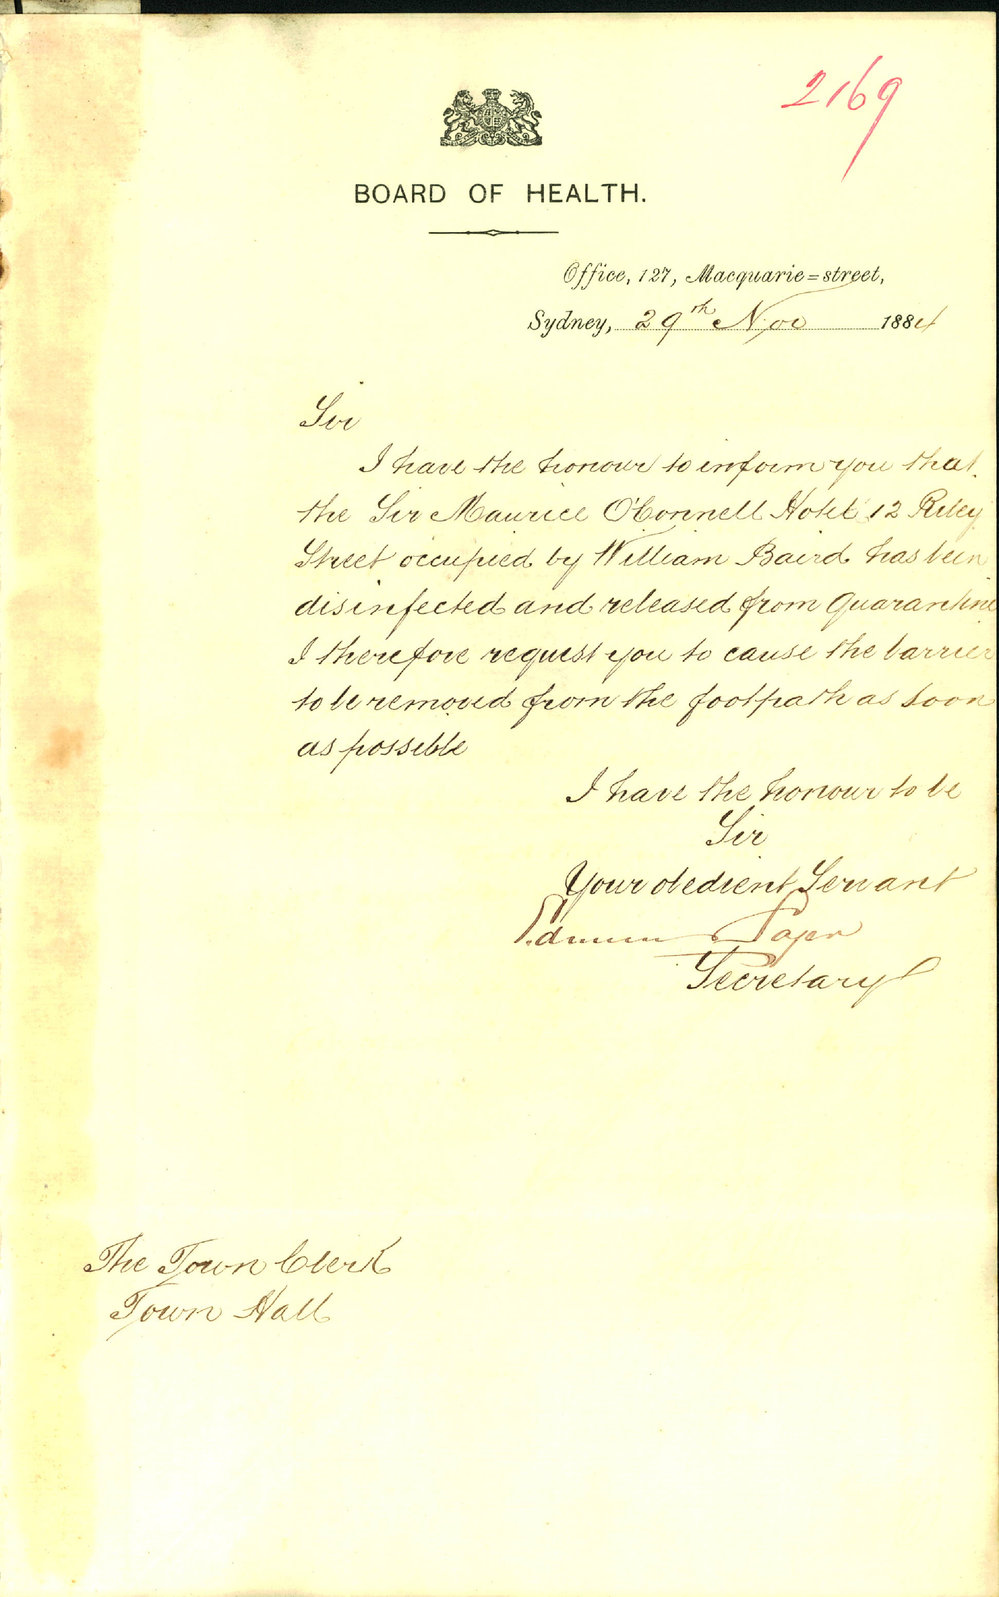 2169
BOARD OF HEALTH.
Office, 127, Macquarie=street,
Sydney, 29th Nov 1884
Sir
I have the honour to inform you that
the Sir Maurice O'Connell Hotel 12 Riley
Street occupied by William Baird has been
disinfected and released from Quarantine
I therefore request you to cause the barrier
to be removed from the footpath as soon
as possible
I have the honour to be
Sir
Your obedient Servant
Edmund Sager
Secretary
The Town Clerk
Town Hall